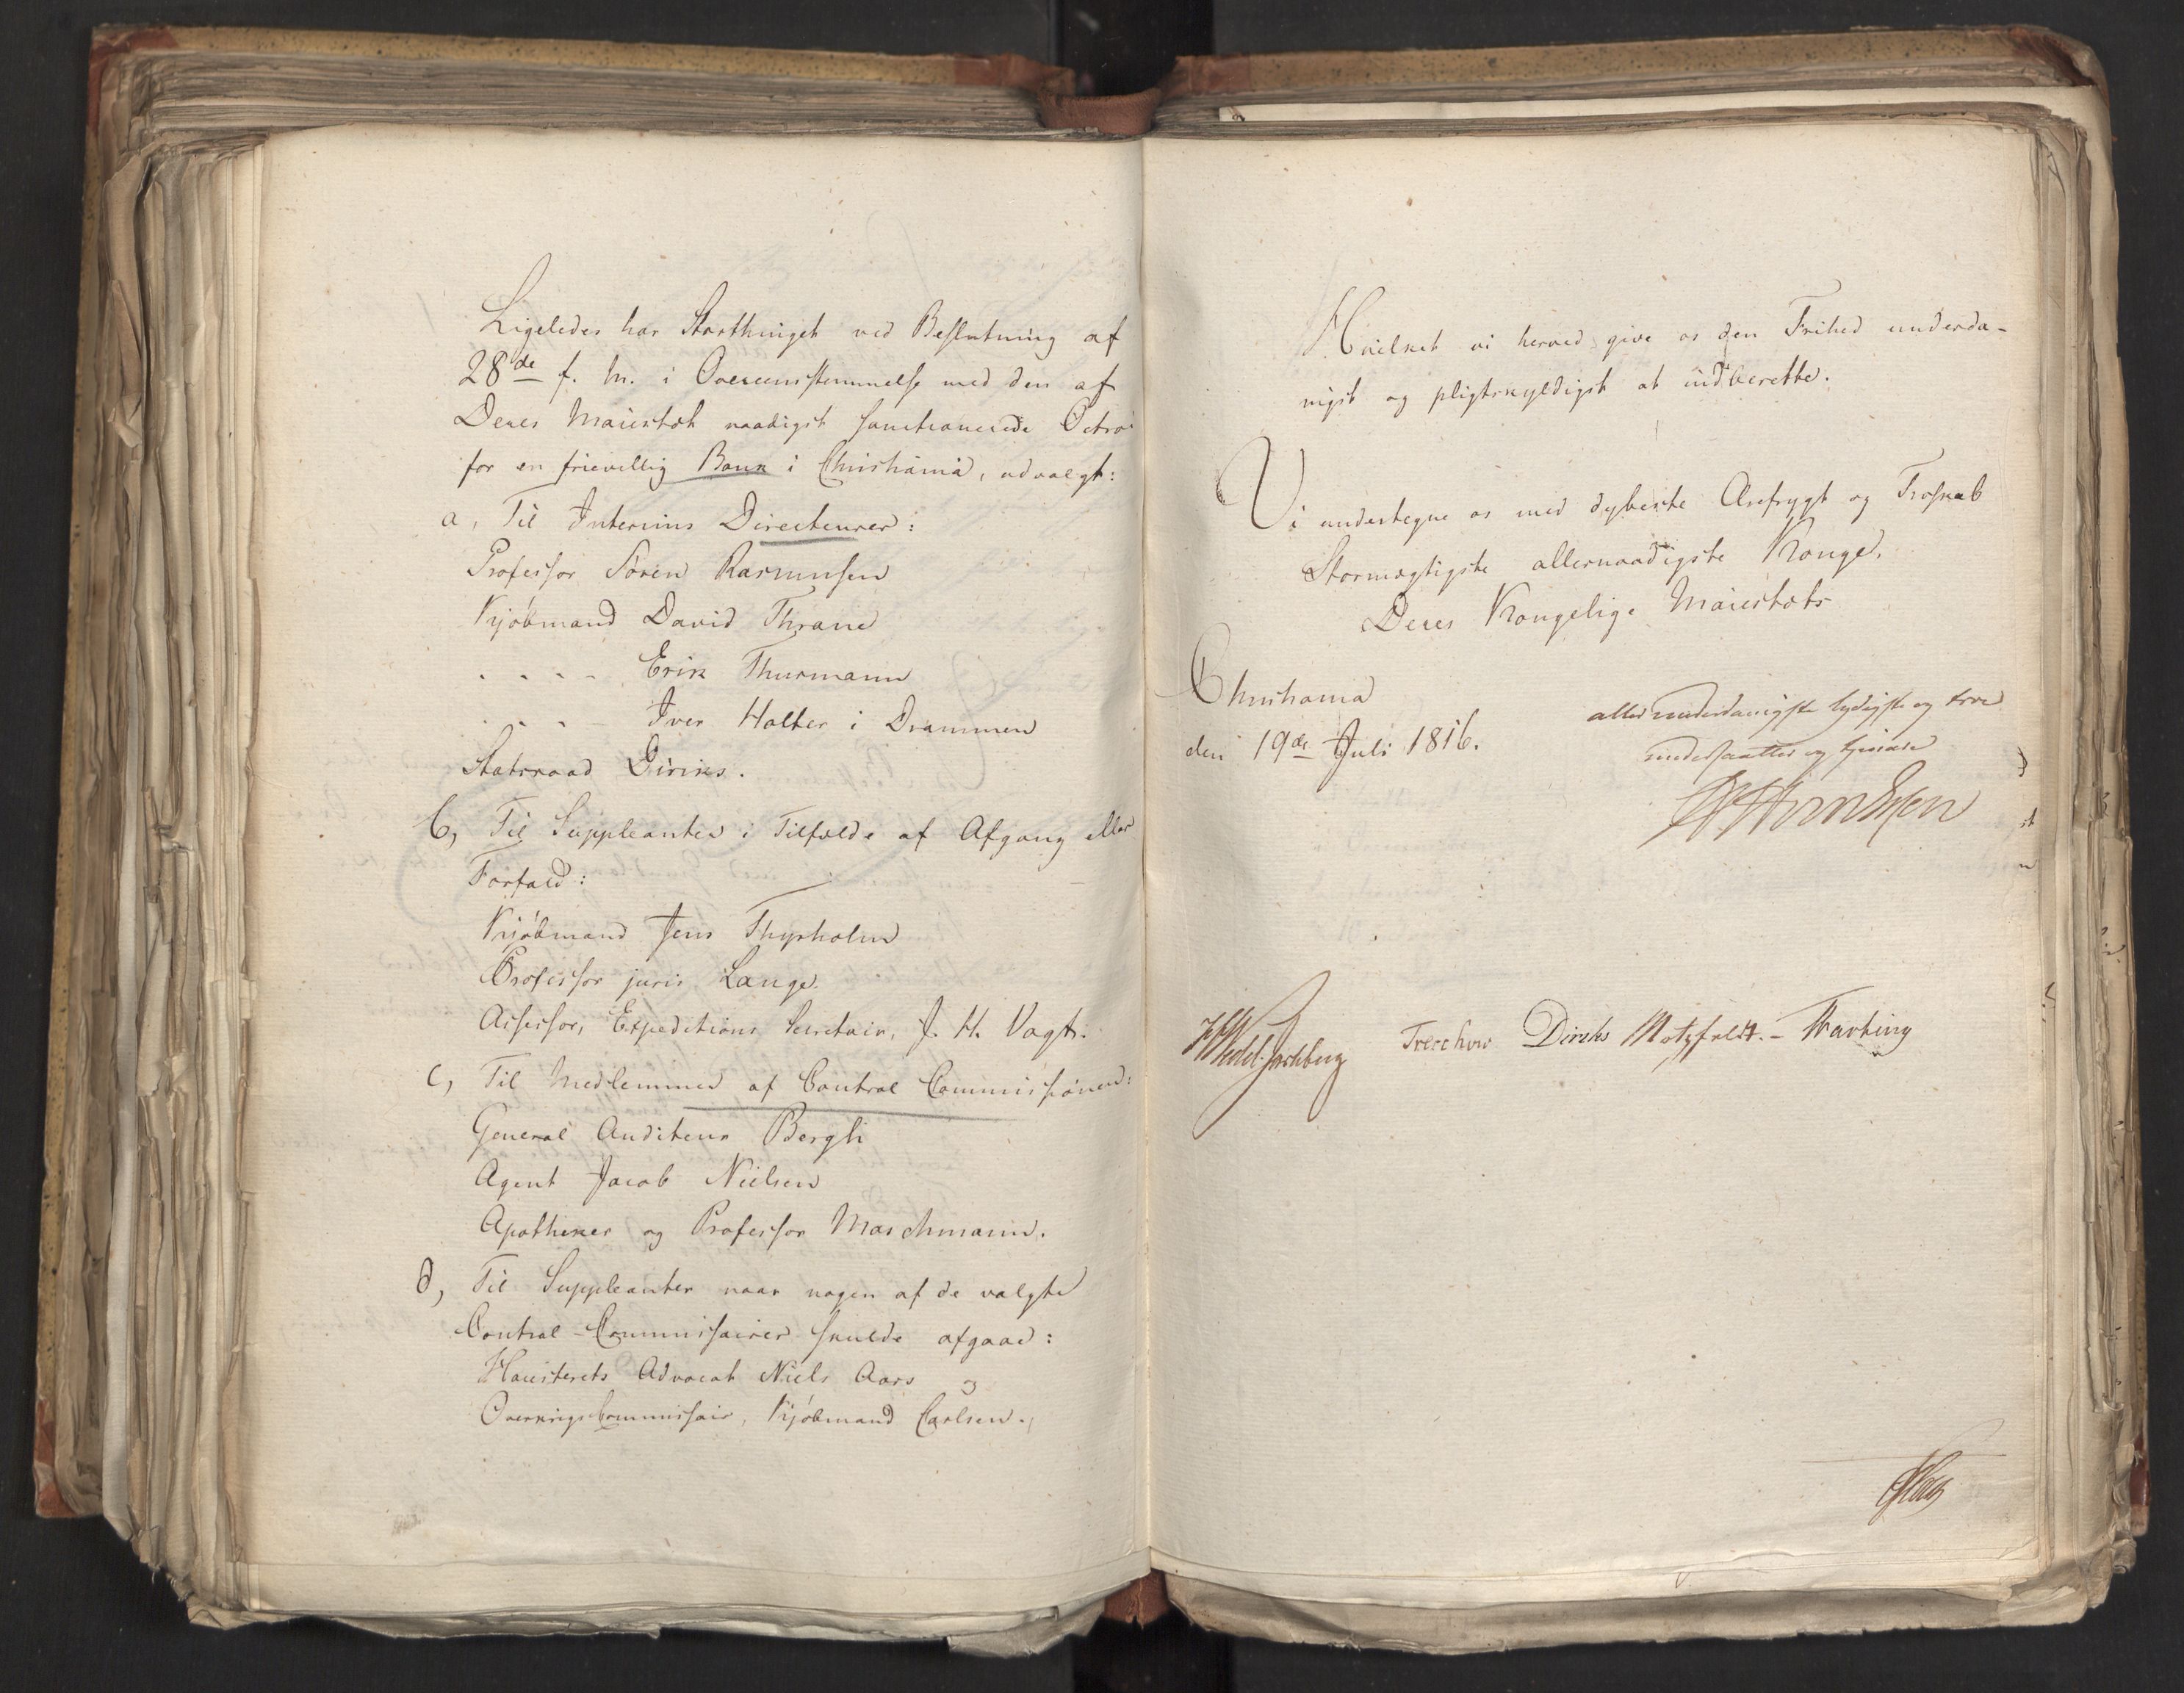 Ligeledes har Storthinget ved Beslutning af
28de f. M. i Overeensstemmelse med den af
Deres Maiestæt naadigst sanctionerede Octroi
for en frievillig Bank i Christiania, udvalgt:
a, Til Interims Directeurer:
Professor Sören Rasmussen
Kjöbmand David Thrane
. . . . Erik Thurmann
. . . . Iver Holter i Drammen
Statsraad Diriks.
b, Til Suppleanter i Tilfælde af Afgang eller
Forfald:
Kjöbmand Jens Thysholm
Professor juris Lange
Assessor, Expeditions Secretair, J. H. Vogt.
c, Til Medlemmer af Control Commissionen:
General Auditeur Bergh
Agent Jacob Nielsen
Apotheker og Professor Maschmann.
d, Til Suppleanter naar nogen af de valgte
Control-Commissairer skulde afgaae:
Höiesterets Advocat Niels Aars og
Overkrigscommissair, Kjöbmand Carlsen.
Hvilket vi herved give os den Frihed underda-
nigst og pligtskyldigst at indberette.
Vi undertegne os med dybeste Ærefrygt og Troskab
Stormægtigste allernaadigste Konge,
Deres Kongelige Maiestæts
Christiania
den 19de Juli 1816.
allerunderdanigste lydigste og troe
undersaatter og tjenere
M Sommerhielm
HWedel Jarlsberg Treschow Diriks Motzfeldt.-